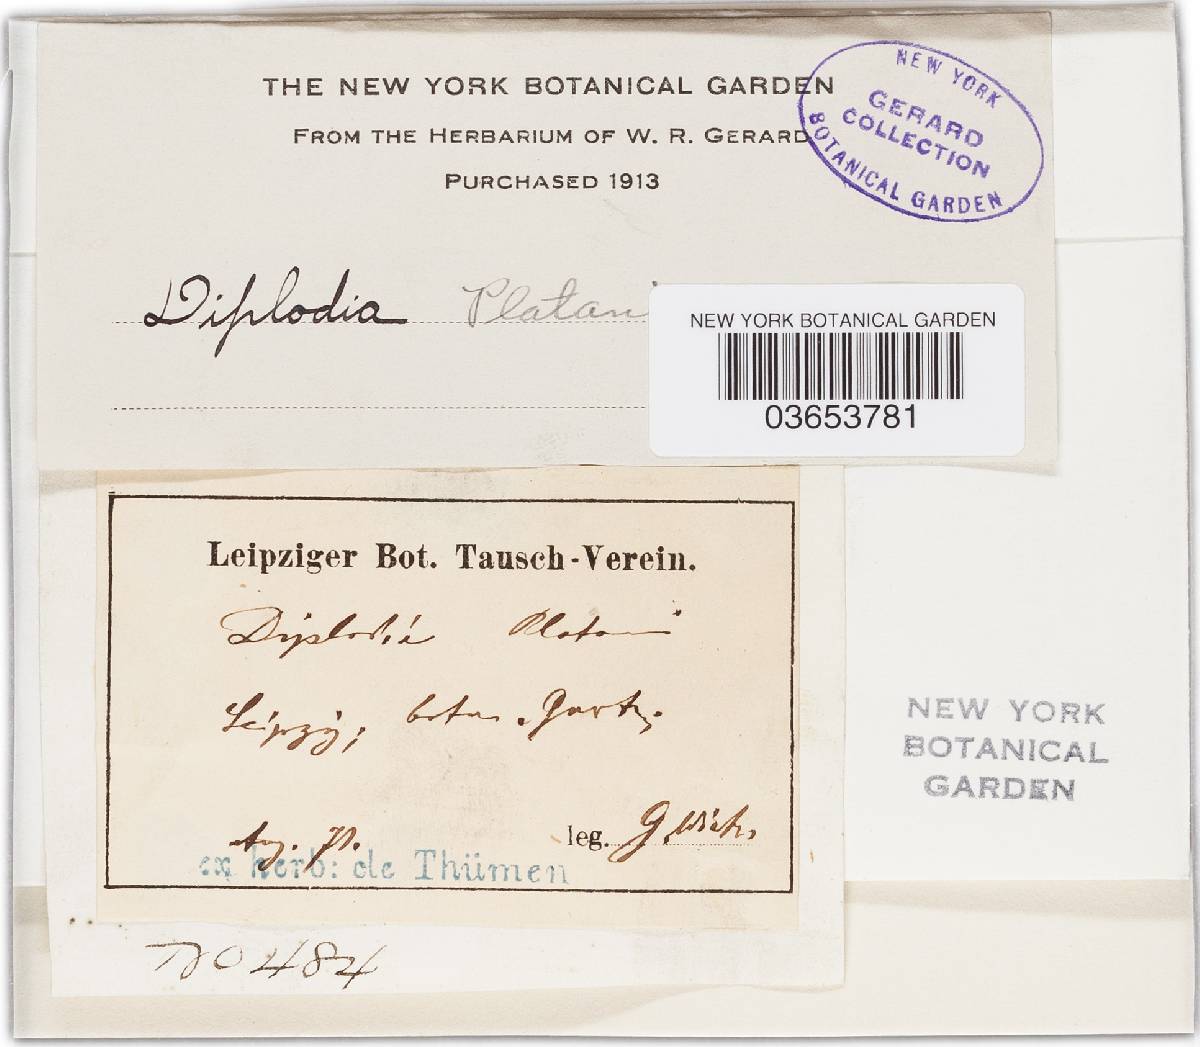 THE NEW YORK BOTANICAL GARDEN
FROM THE HERBARIUM OF W. R. GERARD
PURCHASED 1913
NEW YORK
GERARD
COLLECTION
BOTANICAL GARDEN
Diplodia Platani
NEW YORK BOTANICAL GARDEN
03653781
Leipziger Bot. Tausch-Verein.
Diplodia Platani
Leipzig, botan. Gart.
Aug. 71. leg. G.
ex herb: de Thümen
NEW YORK
BOTANICAL
GARDEN
No 484